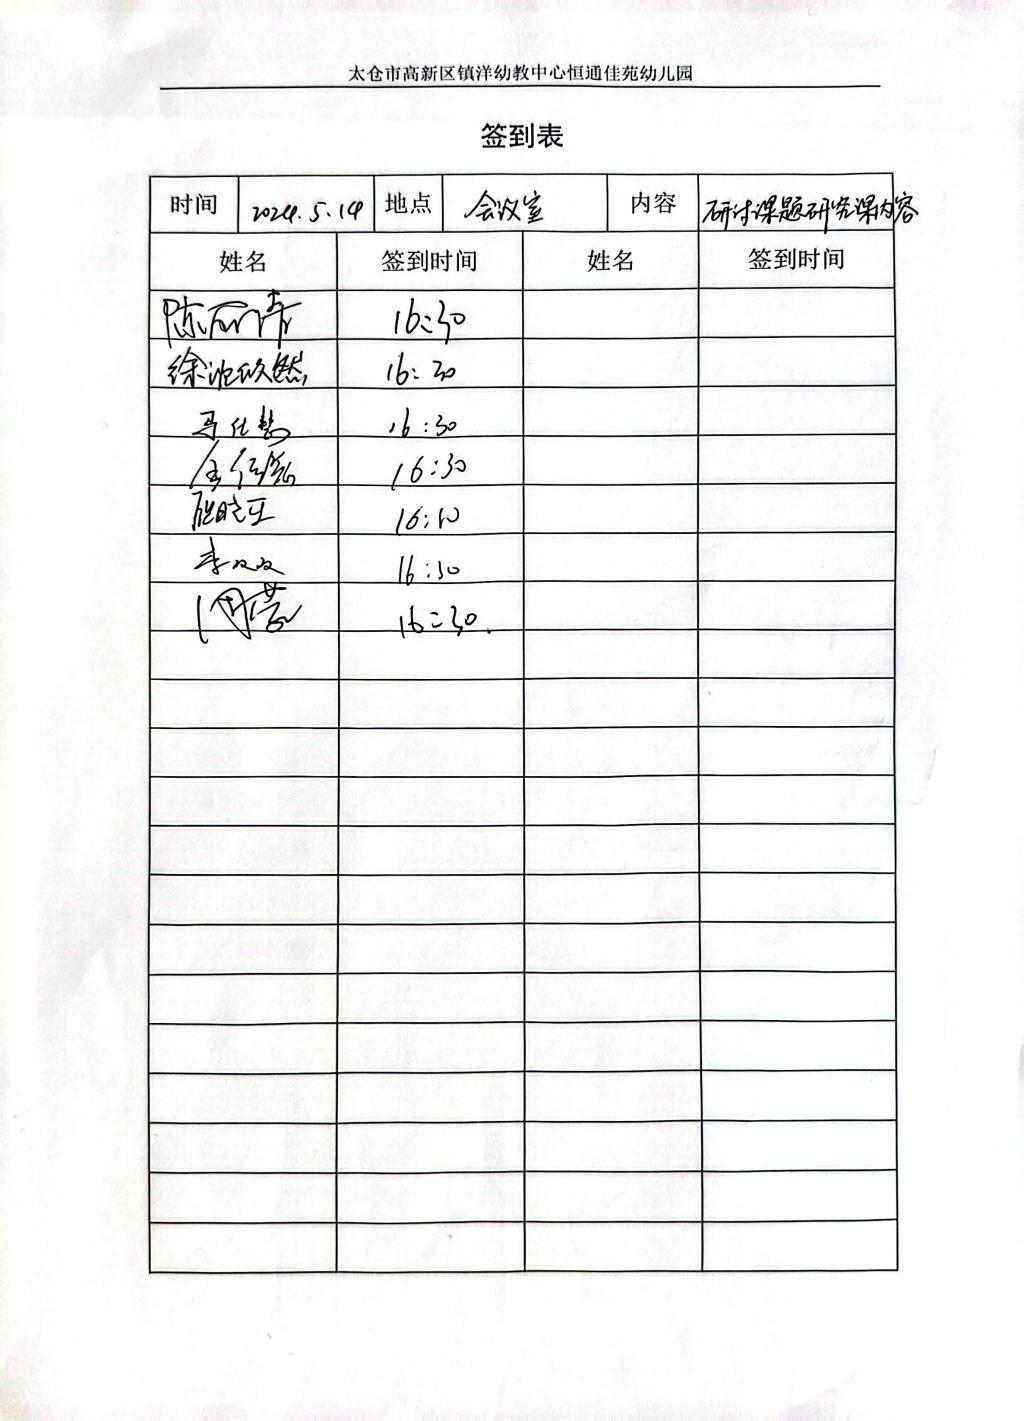 太仓市高新区镇洋幼教中心恒通佳苑幼儿园
签到表
时间 2024.5.14 地点 会议室 内容 研讨课题研究课内容
姓名 签到时间 姓名 签到时间
陈丽倩 16:30
徐 然 16:30
马仕慧 16:30
16:30
顾晓玉 16:10
李双双 16:30
周莹 16:30.